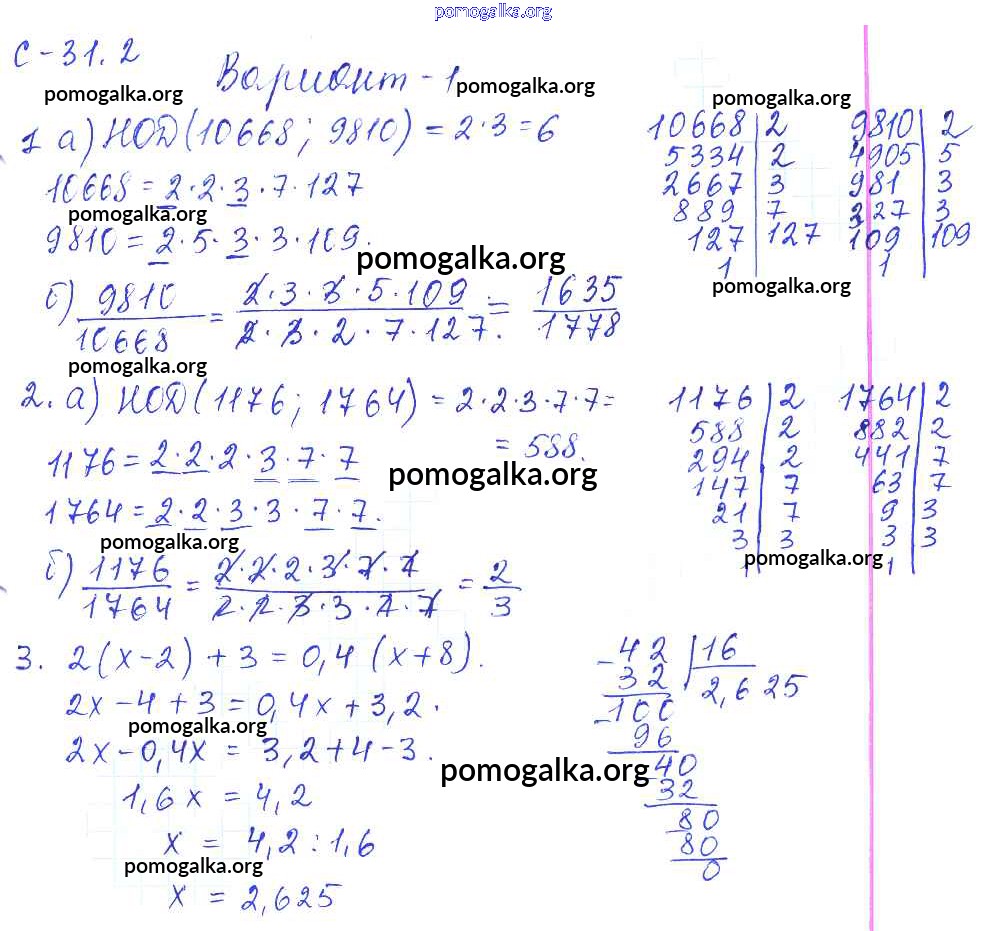 pomogalka.org
С-31.2
Вариант-1
pomogalka.org
pomogalka.org
pomogalka.org
1 а) НОД(10668; 9810) = 2·3 = 6
10668 = 2·2·3·7·127
pomogalka.org
9810 = 2·5·3·3·109.
pomogalka.org
10668 | 2
5334 | 2
2667 | 3
889 | 7
127 | 127
1
9810 | 2
4905 | 5
981 | 3
327 | 3
109 | 109
1
pomogalka.org
б) 9810/10668 = 2·3·3·5·109/2·3·2·7·127 = 1635/1778
pomogalka.org
2. а) НОД(1176; 1764) = 2·2·3·7·7 =
= 588.
1176 = 2·2·2·3·7·7
pomogalka.org
1764 = 2·2·3·3·7·7.
pomogalka.org
1176 | 2
588 | 2
294 | 2
147 | 7
21 | 7
3 | 3
1
1764 | 2
882 | 2
441 | 7
63 | 7
9 | 3
3 | 3
1
pomogalka.org
б) 1176/1764 = 2·2·2·3·7·7/2·2·3·3·7·7 = 2/3
3. 2(x-2) + 3 = 0,4 (x+8).
2x - 4 + 3 = 0,4x + 3,2.
pomogalka.org
2x - 0,4x = 3,2 + 4 - 3.
pomogalka.org
1,6x = 4,2
x = 4,2 : 1,6
pomogalka.org
x = 2,625
-42 | 16
32 | 2,625
-100
96
-40
32
-80
80
0